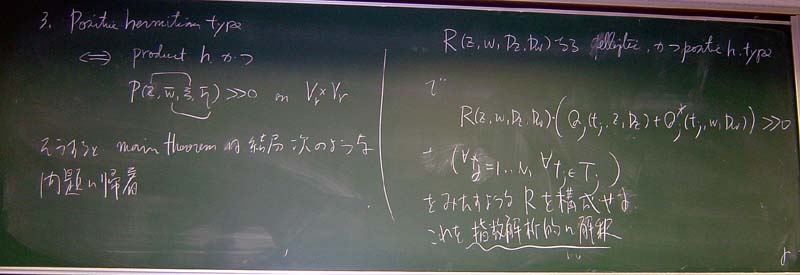 3. Positive hermitian type
⇔ product h. かつ
P(z, w̄, ξ, η̄) ≫ 0 on Vr × Vr
そうすると main theorem は 結局 次のような
問題に帰着
R(z, w, Dz, Dw) なる elliptic, かつ positive h. type
で
R(z, w, Dz, Dw)·(Qj(tj, z, Dz) + Qj*(tj, w, Dw)) ≫ 0
(∀j = 1...N, ∀tj ∈ Tj)
をみたすような R を構成せよ
これを 指数解析的に解釈